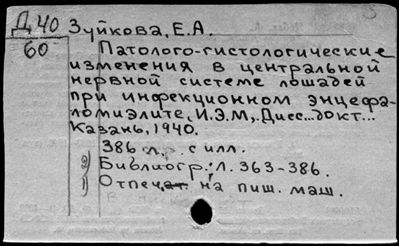 Д 40 Зуйкова, Е.А.
60 Патолого-гистологические
изменения в центральной
нервной системе лошадей
при инфекционном энцефа-
ломиэлите, И.Э.М., Дисс...докт...
Казань, 1940.
386 л. с илл.
2) Библиогр.: Л. 363-386.
1) Отпечат на пиш. маш.